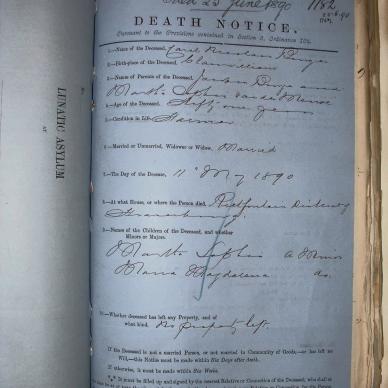 Filed 23 June 1890 1182
DEATH NOTICE,
Pursuant to the Provisions contained in Section 9, Ordinance 104.
1.—Name of the Deceased, Carel Nicolaas
2.—Birth-place of the Deceased, Clanwilliam
3.—Names of Parents of the Deceased, Jacobus and
Martha Sophia
4.—Age of the Deceased, Fifty one years
5.—Condition in Life, Farmer
6.—Married or Unmarried, Widower or Widow, Married
7.—The Day of the Decease, 11th May 1890
8.—At what House, or where the Person died, Rietfontein District
9.—Names of the Children of the Deceased, and whether
Minors or Majors.
Martha Sophia a Minor
Maria Magdalena do.
10.—Whether deceased has left any Property, and of
what kind. No property left.
If the Deceased is not a married Person, or not married in Community of Goods,—or has left no
Will,—this Notice must be made within Six Days after death.
If otherwise, it must be made within Six Weeks.
It must be filled up and signed by the nearest Relative or Connection of the Deceased, who shall
LUNATIC ASYLUM
AT